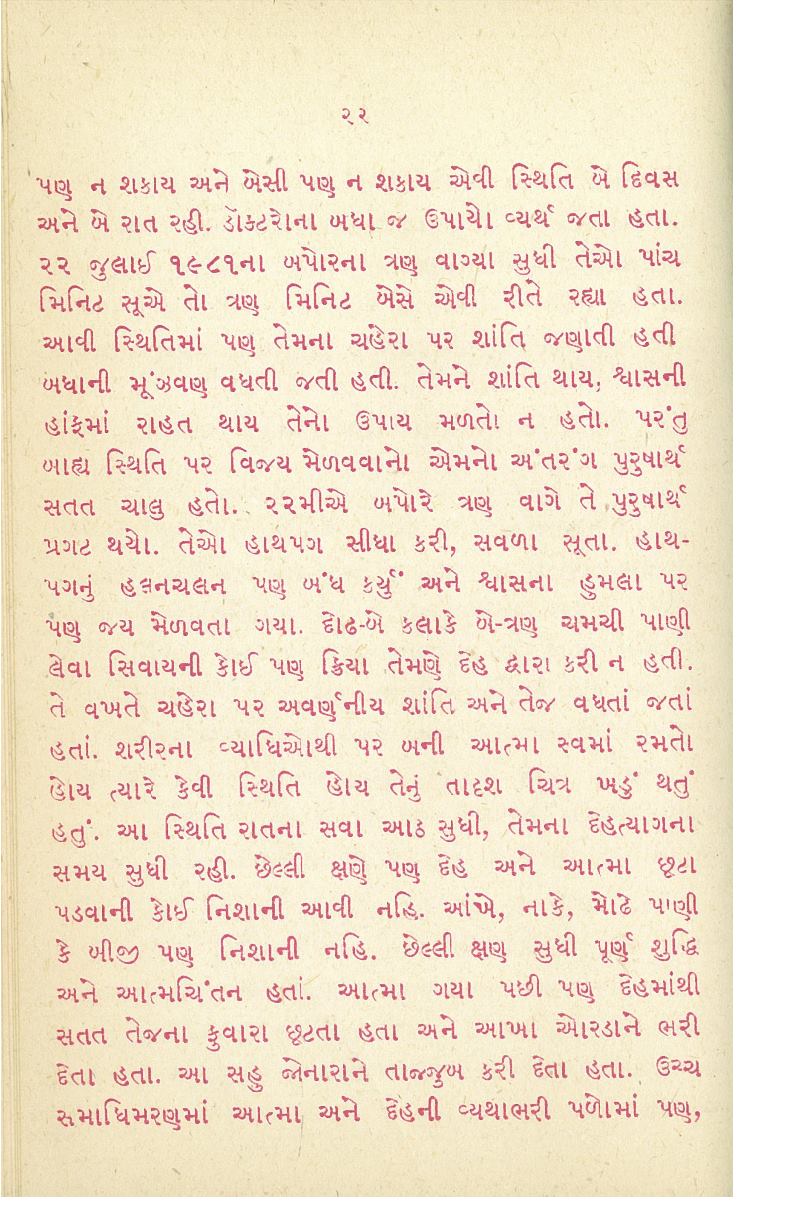 ૨૨
પણ ન શકાય અને બેસી પણ ન શકાય એવી સ્થિતિ બે દિવસ
અને બે રાત રહી. ડૉક્ટરોના બધા જ ઉપાયો વ્યર્થ જતા હતા.
૨૨ જુલાઈ ૧૯૮૧ના બપોરના ત્રણ વાગ્યા સુધી તેઓ પાંચ
મિનિટ સૂએ તો ત્રણ મિનિટ બેસે એવી રીતે રહ્યા હતા.
આવી સ્થિતિમાં પણ તેમના ચહેરા પર શાંતિ જણાતી હતી
બધાની મૂંઝવણ વધતી જતી હતી. તેમને શાંતિ થાય, શ્વાસની
હાંફમાં રાહત થાય તેનો ઉપાય મળતો ન હતો. પરંતુ
બાહ્ય સ્થિતિ પર વિજય મેળવવાનો એમનો અંતરંગ પુરુષાર્થ
સતત ચાલુ હતો. ૨૨મીએ બપોરે ત્રણ વાગે તે પુરુષાર્થ
પ્રગટ થયો. તેઓ હાથપગ સીધા કરી, સવળા સૂતા. હાથ-
પગનું હલનચલન પણ બંધ કર્યું અને શ્વાસના હુમલા પર
પણ જય મેળવતા ગયા. દોઢ-બે કલાકે બે-ત્રણ ચમચી પાણી
લેવા સિવાયની કોઈ પણ ક્રિયા તેમણે દેહ દ્વારા કરી ન હતી.
તે વખતે ચહેરા પર અવર્ણનીય શાંતિ અને તેજ વધતાં જતાં
હતાં. શરીરના વ્યાધિઓથી પર બની આત્મા સ્વમાં રમતો
હોય ત્યારે કેવી સ્થિતિ હોય તેનું તાદૃશ ચિત્ર ખડું થતું
હતું. આ સ્થિતિ રાતના સવા આઠ સુધી, તેમના દેહત્યાગના
સમય સુધી રહી. છેલ્લી ક્ષણે પણ દેહ અને આત્મા છૂટા
પડવાની કોઈ નિશાની આવી નહિ. આંખે, નાકે, મોઢે પાણી
કે બીજી પણ નિશાની નહિ. છેલ્લી ક્ષણ સુધી પૂર્ણ શુદ્ધિ
અને આત્મચિંતન હતાં. આત્મા ગયા પછી પણ દેહમાંથી
સતત તેજના ફુવારા છૂટતા હતા અને આખા ઓરડાને ભરી
દેતા હતા. આ સહુ જોનારાને તાજ્જુબ કરી દેતા હતા. ઉચ્ચ
સમાધિમરણમાં આત્મા અને દેહની વ્યથાભરી પળોમાં પણ,